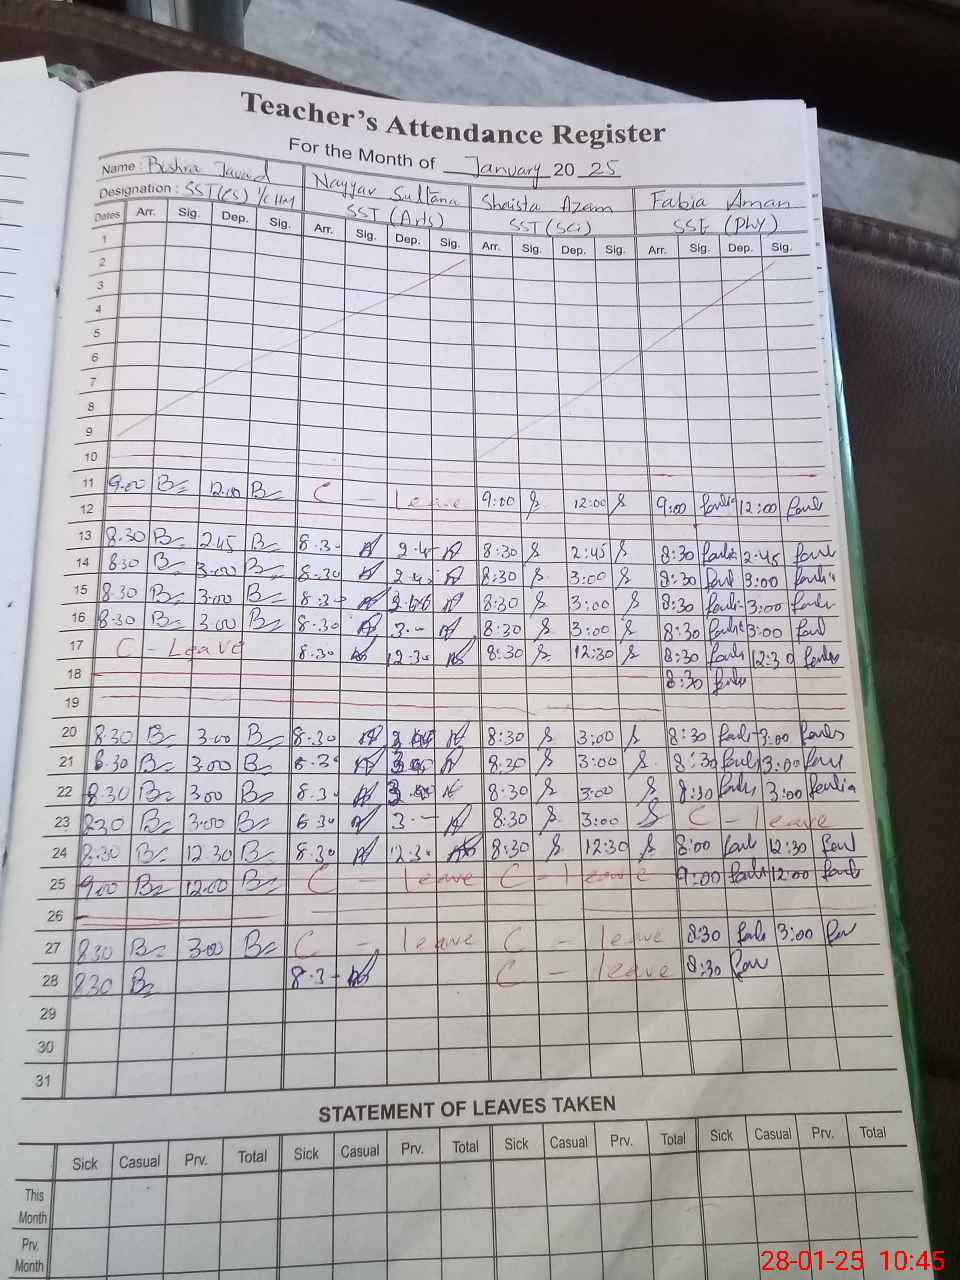 Teacher's Attendance Register
For the Month of January 20 25
Name : Bushra Javaid Nayyar Sultana Shaista Azam Fabia Aman
Designation : SST(CS) I/C HM SST (Arts) SST (Sci) SST (Phy)
Dates Arr. Sig. Dep. Sig. Arr. Sig. Dep. Sig. Arr. Sig. Dep. Sig. Arr. Sig. Dep. Sig.
1
2
3
4
5
6
7
8
9
10
11 9.00 12.00 C - leave 9:00 12:00 9:00 12:00
12
13 8.30 2.45 8.30 2.4 8:30 2:45 8:30 2:45
14 830 3.00 8.30 2.4 8:30 3:00 8:30 3:00
15 8.30 3.00 8.30 8:30 3:00 8:30 3:00
16 8.30 3.00 8.30 3.- 8:30 3:00 8:30 3:00
17 C - Leave 8.30 12.30 8:30 12:30 8:30 12:30
18 8:30
19
20 8.30 3.00 8.30 8:30 3:00 8:30 3:00
21 8.30 3.00 8.30 8:30 3:00 8:30 3:00
22 8.30 3.00 8.30 8:30 3:00 8:30 3:00
23 830 3.00 8.30 3.- 8:30 3:00 C - leave
24 8.30 12.30 8.30 12.30 8:30 12:30 8:00 12:30
25 9.00 12.00 C - leave C - leave 9:00 12:00
26
27 8.30 3.00 C - leave C - leave 8:30 3:00
28 830 8.3- C - leave 8:30
29
30
31
STATEMENT OF LEAVES TAKEN
Sick Casual Prv. Total Sick Casual Prv. Total Sick Casual Prv. Total Sick Casual Prv. Total
This
Month
Prv.
Month
28-01-25 10:45